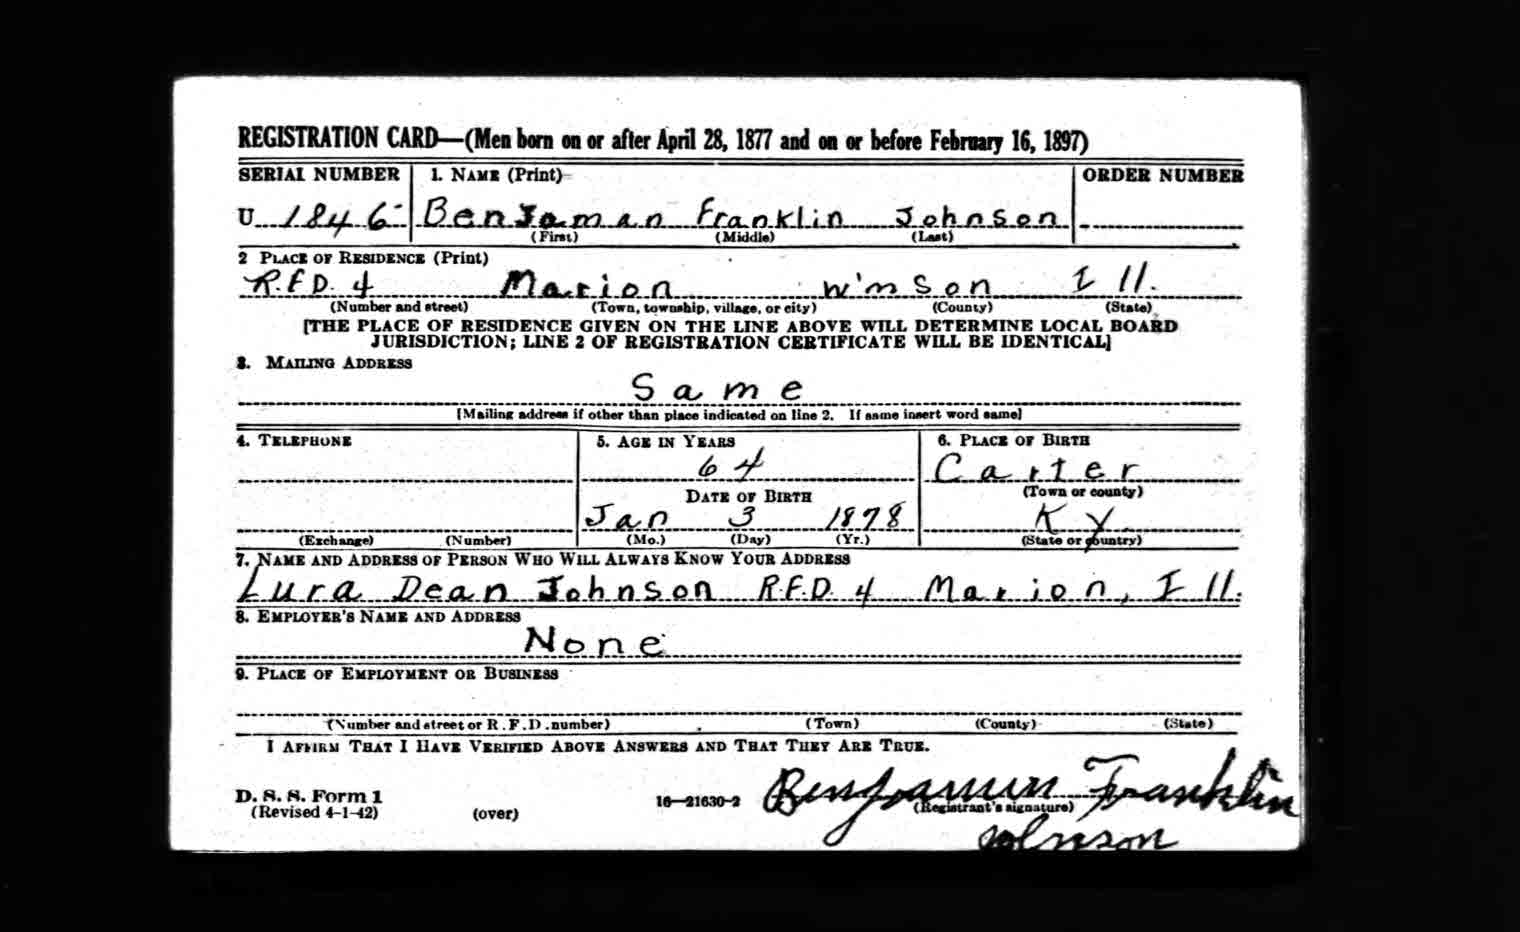 REGISTRATION CARD—(Men born on or after April 28, 1877 and on or before February 16, 1897)
SERIAL NUMBER 1. NAME (Print) ORDER NUMBER
U 1846 Benjaman Franklin Johnson
(First) (Middle) (Last)
2 PLACE OF RESIDENCE (Print)
R.F.D. 4 Marion W'mson Ill.
(Number and street) (Town, township, village, or city) (County) (State)
[THE PLACE OF RESIDENCE GIVEN ON THE LINE ABOVE WILL DETERMINE LOCAL BOARD
JURISDICTION; LINE 2 OF REGISTRATION CERTIFICATE WILL BE IDENTICAL]
3. MAILING ADDRESS
Same
[Mailing address if other than place indicated on line 2. If same insert word same]
4. TELEPHONE 5. AGE IN YEARS 6. PLACE OF BIRTH
64 Carter
DATE OF BIRTH (Town or county)
Jan 3 1878 Ky
(Exchange) (Number) (Mo.) (Day) (Yr.) (State or country)
7. NAME AND ADDRESS OF PERSON WHO WILL ALWAYS KNOW YOUR ADDRESS
Lura Dean Johnson R.F.D. 4 Marion, Ill.
8. EMPLOYER'S NAME AND ADDRESS
None
9. PLACE OF EMPLOYMENT OR BUSINESS
(Number and street or R.F.D. number) (Town) (County) (State)
I AFFIRM THAT I HAVE VERIFIED ABOVE ANSWERS AND THAT THEY ARE TRUE.
D. S. S. Form 1
(Revised 4-1-42) (over) 16—21630-2 Benjamin Franklin
(Registrant's signature)
Johnson